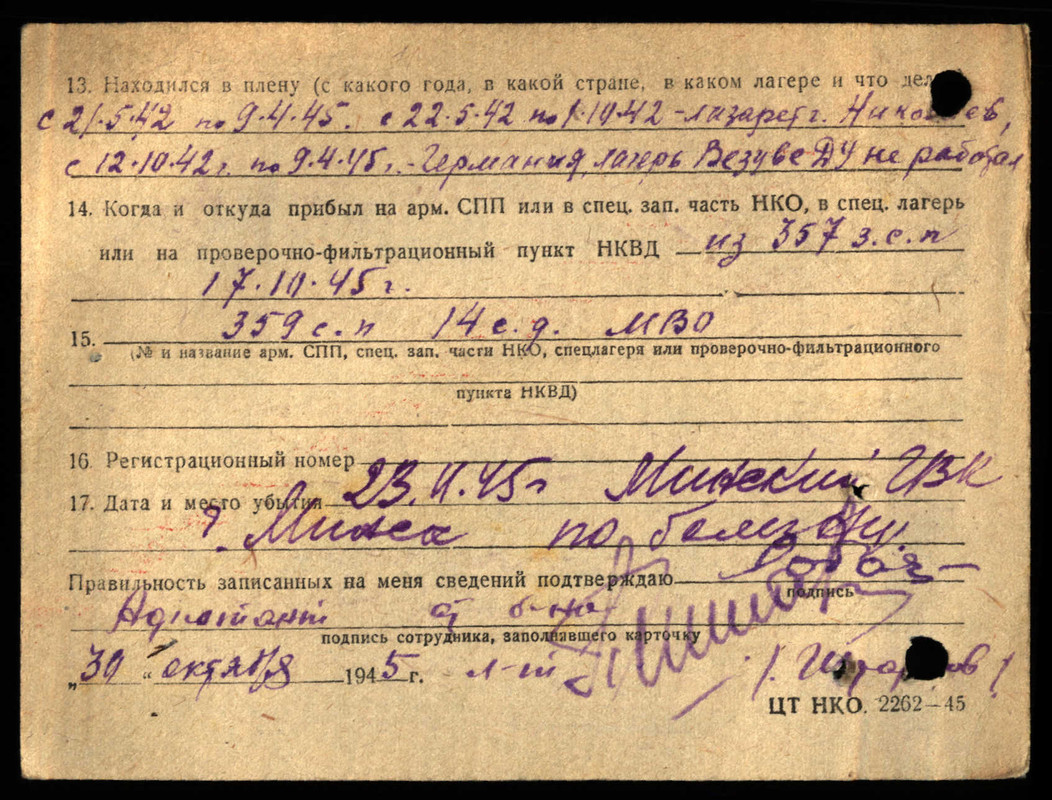 13. Находился в плену (с какого года, в какой стране, в каком лагере и что дел
с 21.5.42 по 9.4.45. с 22.5.42 по 1.10.42 - лазарет г. Никол ев,
с 12.10.42г. по 9.4.45г. - Германия, лагерь Везуве ДУ не работал
14. Когда и откуда прибыл на арм. СПП или в спец. зап. часть НКО, в спец. лагерь
или на проверочно-фильтрационный пункт НКВД из 357 з.с.п
17.10.45 г.
15. 359 с.п 14 с.д. МВО
(№ и название арм. СПП, спец. зап. части НКО, спецлагеря или проверочно-фильтрационного
пункта НКВД)
16. Регистрационный номер
17. Дата и место убытия 23.11.45г Минский ГВК
г. Минск по
Правильность записанных на меня сведений подтверждаю
подпись
Адъютант б-на
подпись сотрудника, заполнявшего карточку
„30“ октября 1945 г. л-т
ЦТ НКО. 2262—45